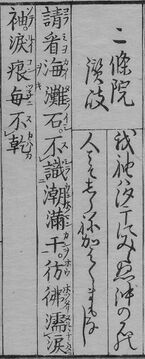 二條院
讃岐
我袖ハ汐干にみえぬ沖の石の
人こそしらねかはくまもなし
請看海灘石。不識潮滿干。彷彿濡涙
袖。涙痕每不乾